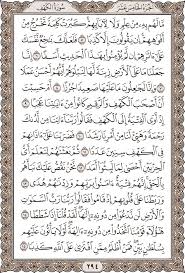 الجزء الخامس عشر
سورة الكهف
مَّا لَهُم بِهِۦ مِنْ عِلْمٍ وَلَا لِءَابَآئِهِمْ كَبُرَتْ كَلِمَةً تَخْرُجُ مِنْ
أَفْوَٰهِهِمْ إِن يَقُولُونَ إِلَّا كَذِبًا ٥ فَلَعَلَّكَ بَٰخِعٌ نَّفْسَكَ
عَلَىٰٓ ءَاثَٰرِهِمْ إِن لَّمْ يُؤْمِنُوا۟ بِهَٰذَا ٱلْحَدِيثِ أَسَفًا ٦ إِنَّا
جَعَلْنَا مَا عَلَى ٱلْأَرْضِ زِينَةً لَّهَا لِنَبْلُوَهُمْ أَيُّهُمْ أَحْسَنُ عَمَلًا
٧ وَإِنَّا لَجَٰعِلُونَ مَا عَلَيْهَا صَعِيدًا جُرُزًا ٨ أَمْ حَسِبْتَ
أَنَّ أَصْحَٰبَ ٱلْكَهْفِ وَٱلرَّقِيمِ كَانُوا۟ مِنْ ءَايَٰتِنَا عَجَبًا ٩
إِذْ أَوَى ٱلْفِتْيَةُ إِلَى ٱلْكَهْفِ فَقَالُوا۟ رَبَّنَآ ءَاتِنَا مِن لَّدُنكَ
رَحْمَةً وَهَيِّئْ لَنَا مِنْ أَمْرِنَا رَشَدًا ١٠ فَضَرَبْنَا عَلَىٰٓ ءَاذَانِهِمْ
فِى ٱلْكَهْفِ سِنِينَ عَدَدًا ١١ ثُمَّ بَعَثْنَٰهُمْ لِنَعْلَمَ أَىُّ ٱلْحِزْبَيْنِ
أَحْصَىٰ لِمَا لَبِثُوٓا۟ أَمَدًا ١٢ نَّحْنُ نَقُصُّ عَلَيْكَ نَبَأَهُم
بِٱلْحَقِّ إِنَّهُمْ فِتْيَةٌ ءَامَنُوا۟ بِرَبِّهِمْ وَزِدْنَٰهُمْ هُدًى ١٣
وَرَبَطْنَا عَلَىٰ قُلُوبِهِمْ إِذْ قَامُوا۟ فَقَالُوا۟ رَبُّنَا رَبُّ ٱلسَّمَٰوَٰتِ
وَٱلْأَرْضِ لَن نَّدْعُوَا۟ مِن دُونِهِۦٓ إِلَٰهًا لَّقَدْ قُلْنَآ إِذًا شَطَطًا
١٤ هَٰٓؤُلَآءِ قَوْمُنَا ٱتَّخَذُوا۟ مِن دُونِهِۦٓ ءَالِهَةً لَّوْلَا يَأْتُونَ عَلَيْهِم
بِسُلْطَٰنٍۭ بَيِّنٍ فَمَنْ أَظْلَمُ مِمَّنِ ٱفْتَرَىٰ عَلَى ٱللَّهِ كَذِبًا ١٥
٢٩٤